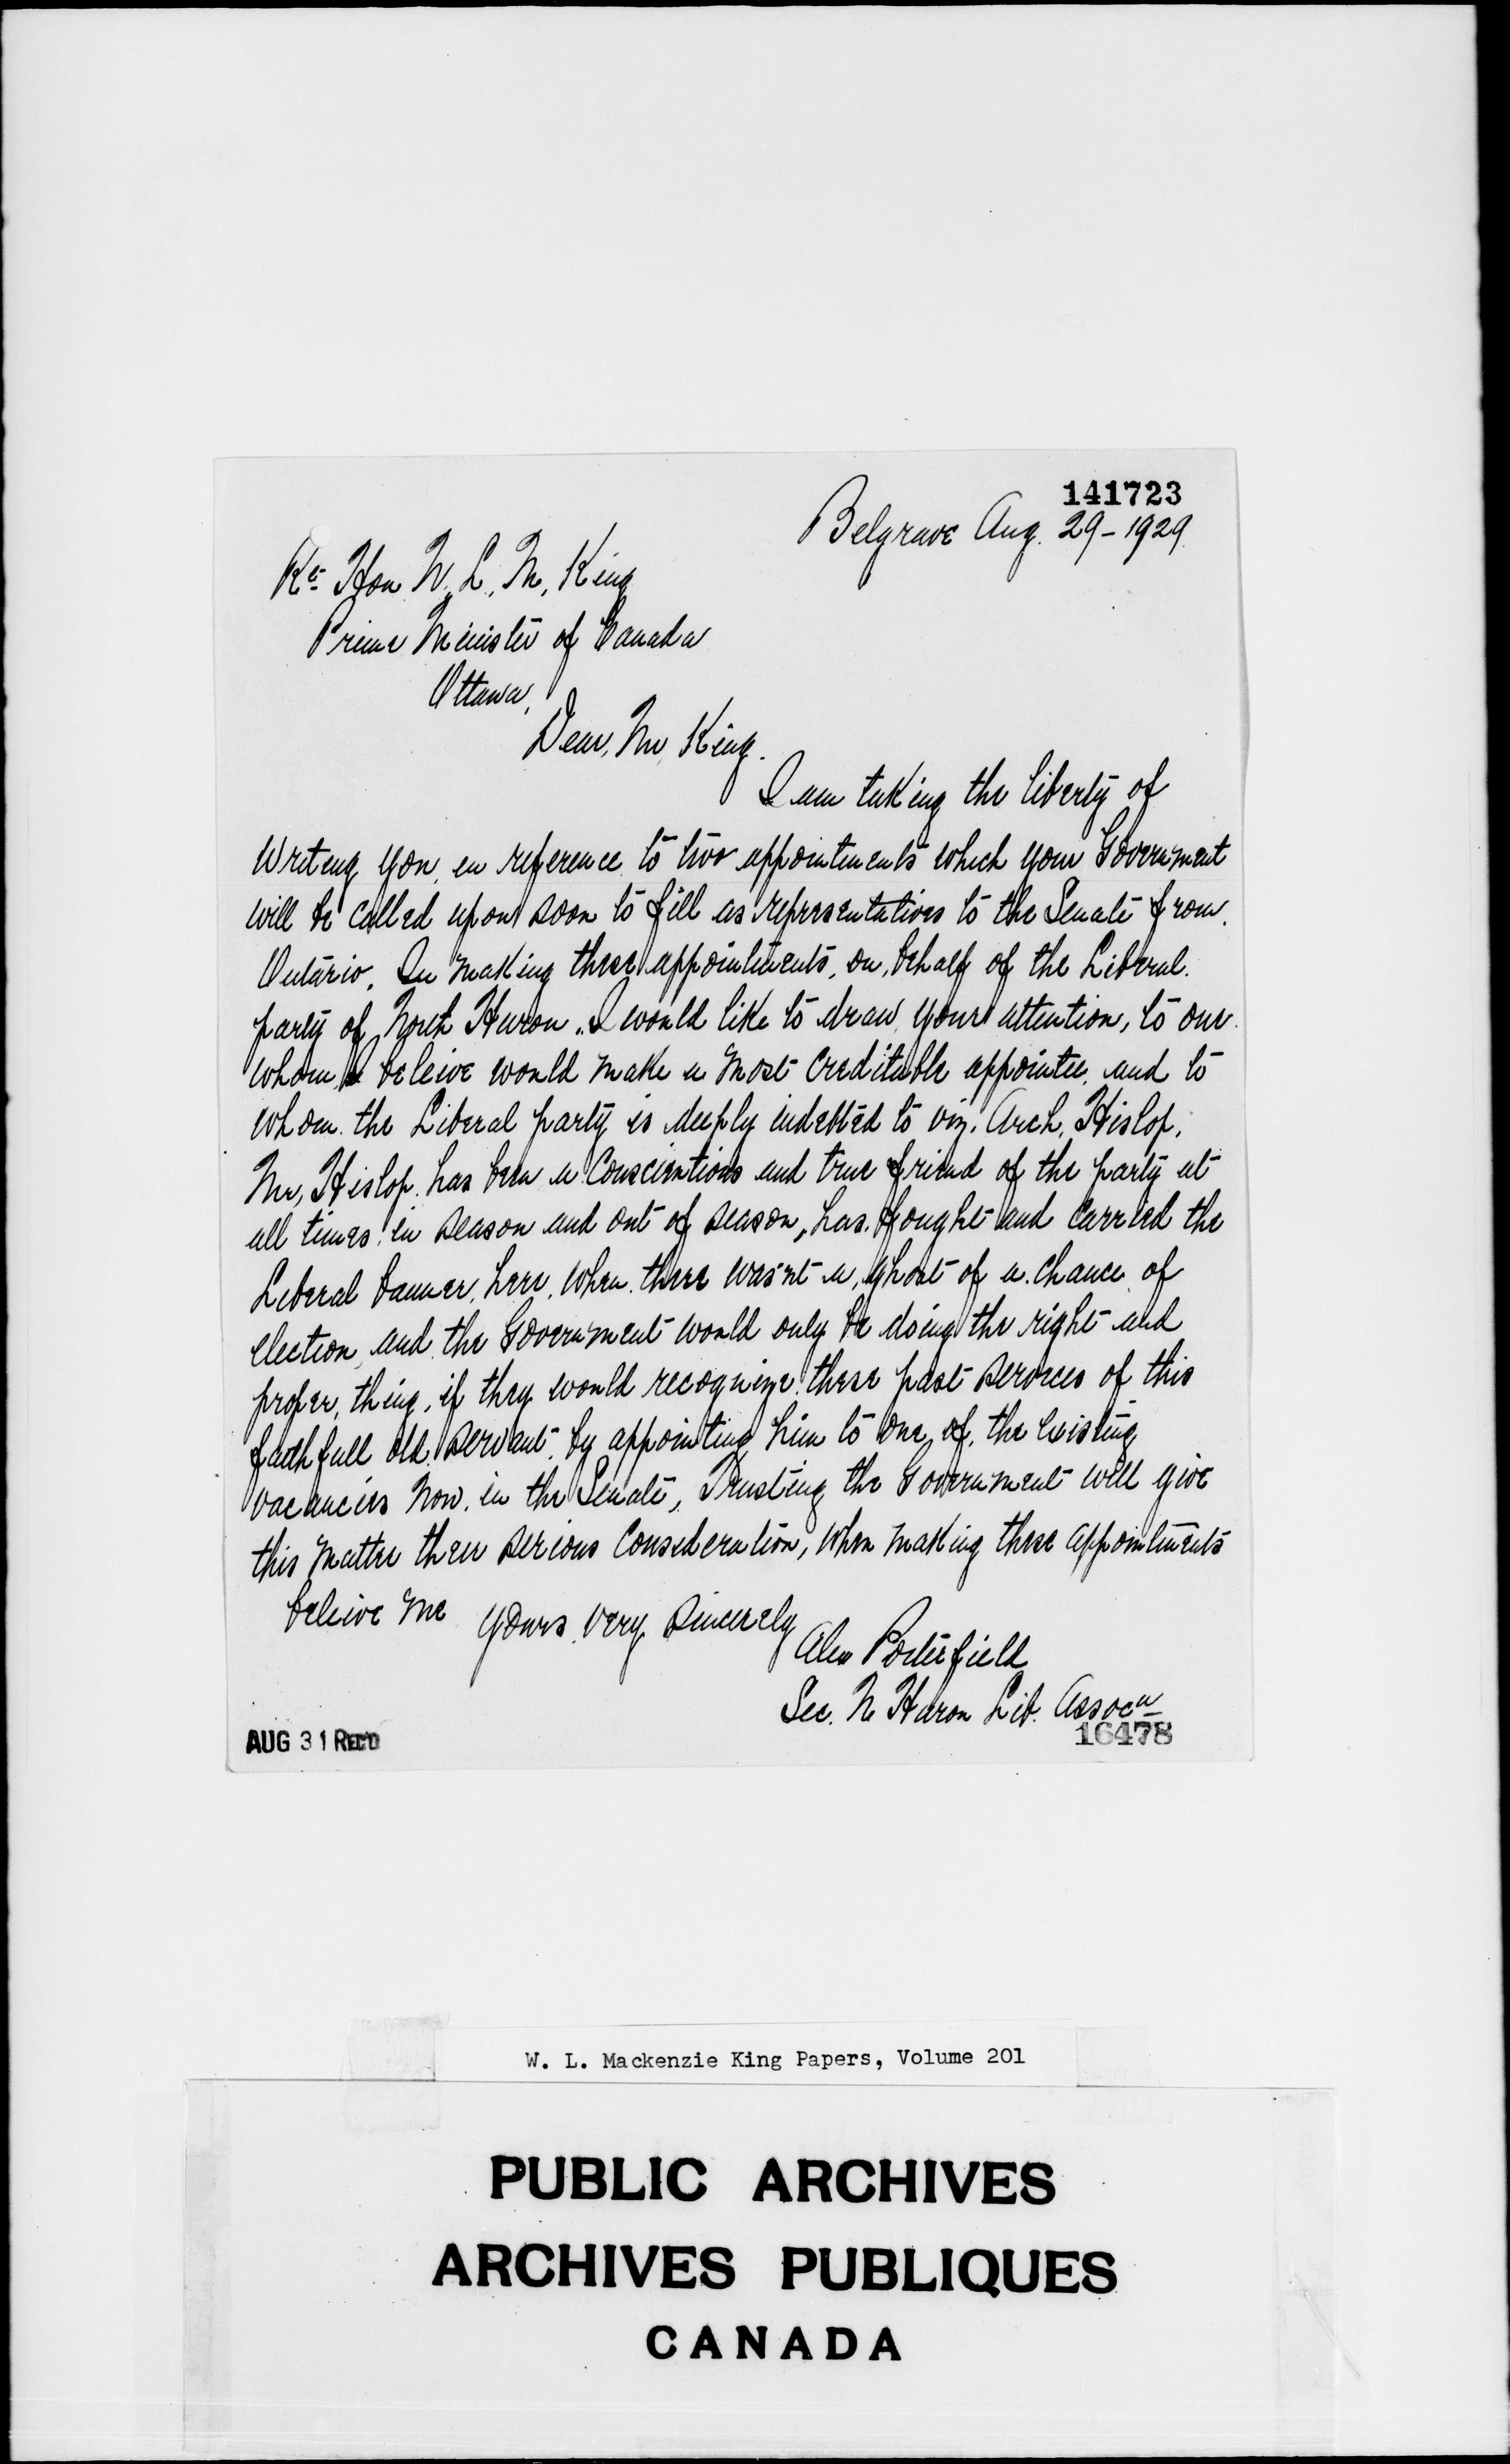 141723
Belgrave Aug. 29-1929.
Rt Hon W. L. M. King
Prime Minister of Canada
Ottawa,
Dear, Mr King.
I am taking the liberty of
writing you, in reference to two appointments which your Government
will be called upon soon to fill as representatives to the Senate from.
Ontario. In making these appointments, on, behalf of the Liberal.
party of North Huron. I would like to draw your attention, to one
whom I beleive would make a most creditable appointee, and to
whom the Liberal party is deeply indebted to viz. Arch. Hislop.
Mr, Hislop. has been a conscientious and true friend of the party at
all times in season and out of season, has. fought and carried the
Liberal banner, here, when. there was'nt a, ghost of a. chance of
election, and the Government would only be doing the right and
proper, thing, if they would recognize these past services of this
faithfull old servant, by appointing him to one of, the existing
vacancies now, in the Senate, Trusting the Government will give
this matter their serious consideration, when making these appointments
beleive me
yours very sincerely
Alex Porterfield
Sec. N Huron Lib. Assocn
AUG 31 REC'D
16478
W. L. Mackenzie King Papers, Volume 201
PUBLIC ARCHIVES
ARCHIVES PUBLIQUES
CANADA